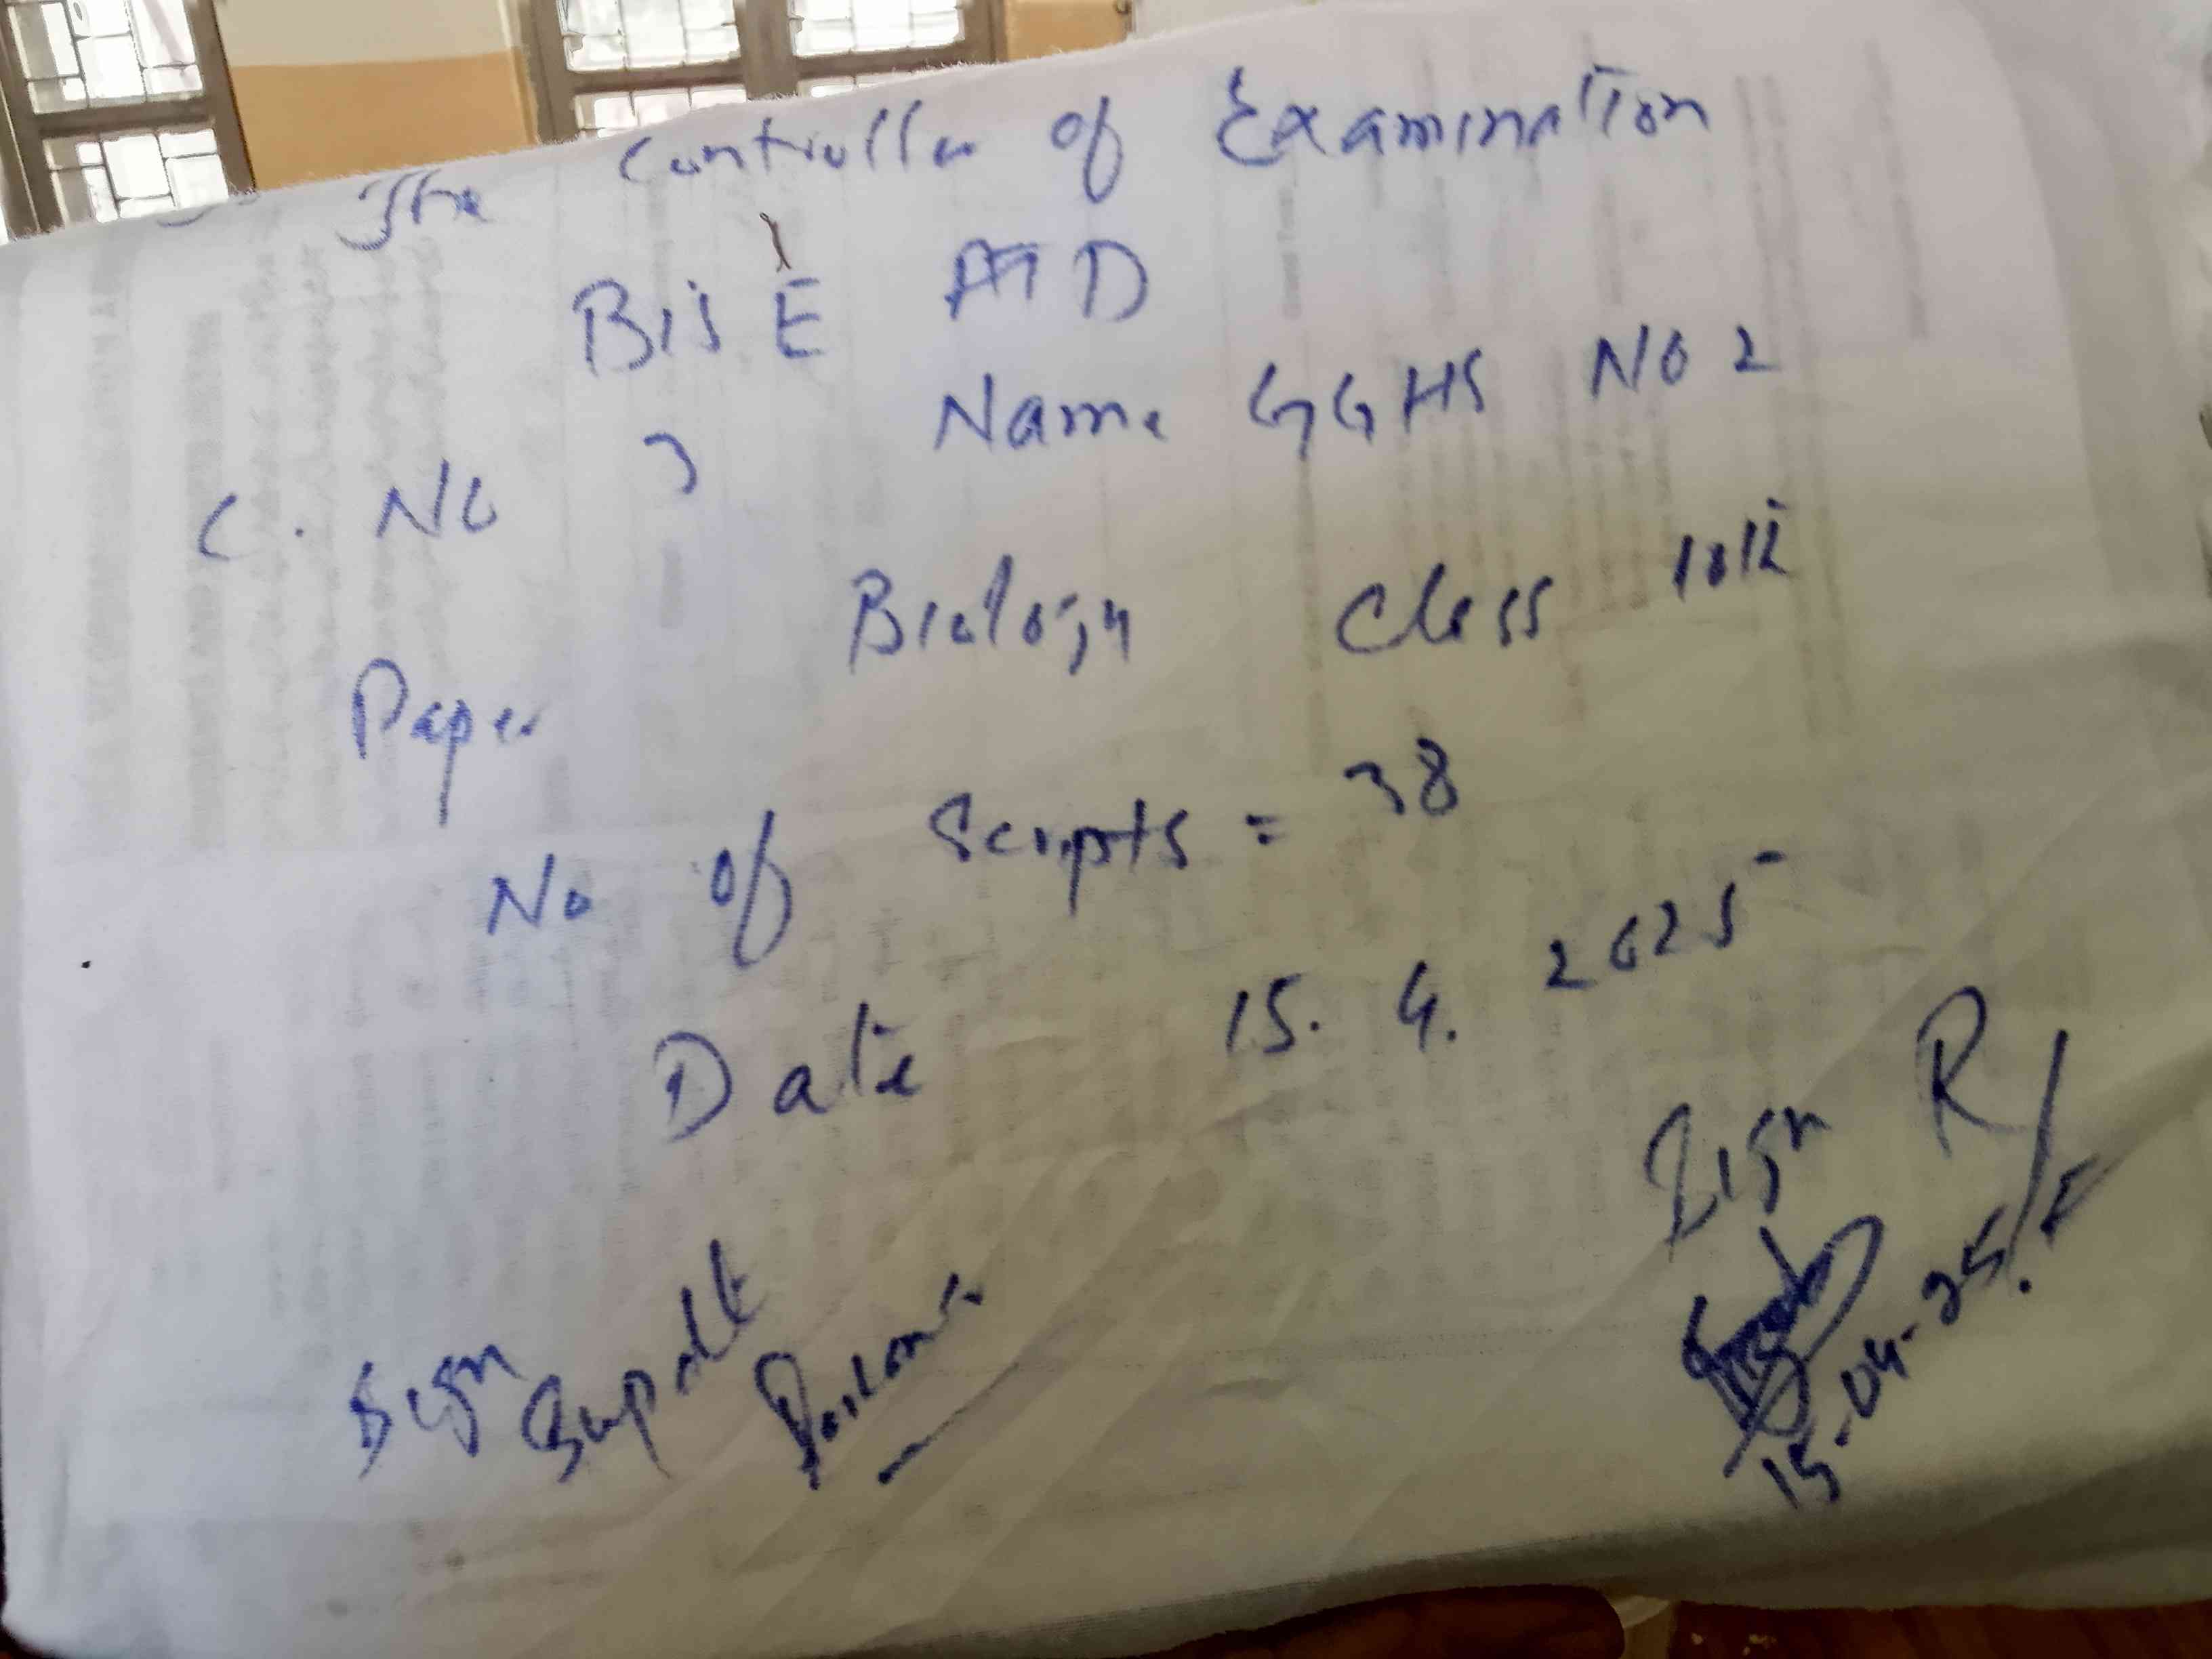 The Controller of Examination
BISE ATD
C. No 3 Name GGHS No 2
Paper Biology Class 10th
No of Scripts = 38
Date 15. 4. 2025
Sign R/I
Sign Supdtt
15-04-25.